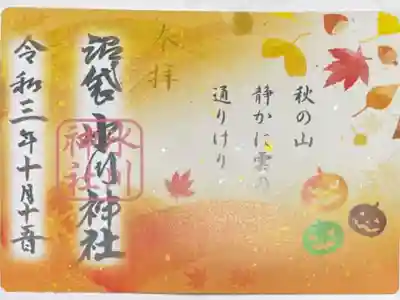 秋の山
静かに雲の
通りけり
奉拝
沼袋氷川神社
氷川
神社
令和三年十月十五日